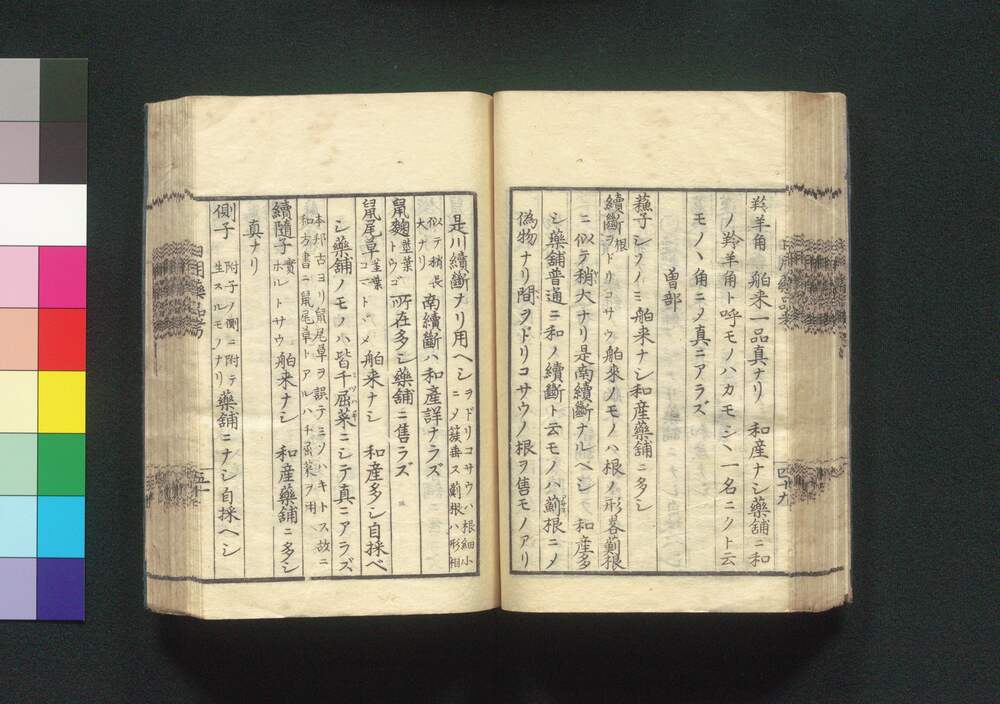 羚羊角　舶来一品真ナリ　和産ナシ藥舗ニ和
ノ羚羊角ト呼モノハカモシヽ一名ニクト云
モノヽ角ニメ真ニアラズ
曽部
蘓子シソノミ　舶来ナシ和産藥舗ニ多シ
續斷根ヲドリコサウ　舶来ノモノハ根ノ形畧薊根
ニ似テ稍大ナリ是南續斷ナルベシ　和産多
シ藥舗普通ニ和ノ續斷ト云モノハ薊根ニメ
偽物ナリ間ヲドリコサウノ根ヲ售モノアリ
四十九
是川續斷ナリ用ヘシ
ヲドリコサウハ根細小
ニメ蔟垂ス薊根ハ形相
似テ稍長
大ナリ
南續斷ハ和産詳ナラズ
鼠麴
茎葉
トウゴ
所在多シ藥舗ニ售ラズ
鼠尾草
茎葉
コマノトヾメ
舶来ナシ　和産多シ自採ベ
シ藥舗ノモノハ皆千屈菜ニシテ真ニアラズ
本邦古ヨリ鼠尾草ヲ誤テミソハキトス故ニ
和方書ニ鼠尾草トアルハ千屈菜ヲ用
續隨子
實
ホルトサウ
舶来ナシ　和産藥舗ニ多シ
真ナリ
側子
附子ノ側ニ附テ
生スルモノナリ
藥舗ニナシ自採ヘシ
五十